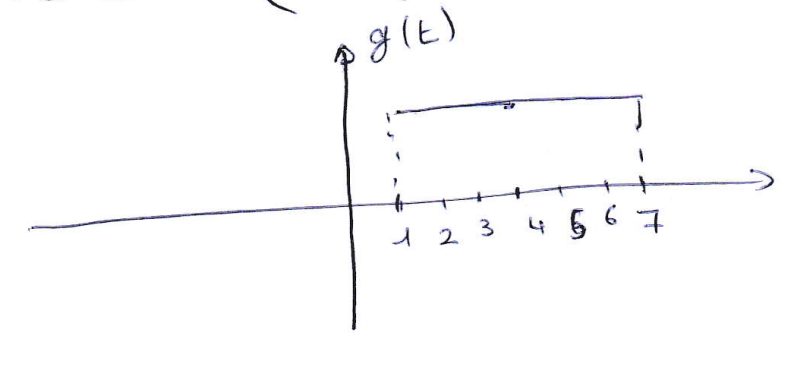 g(t)
1 2 3 4 5 6 7